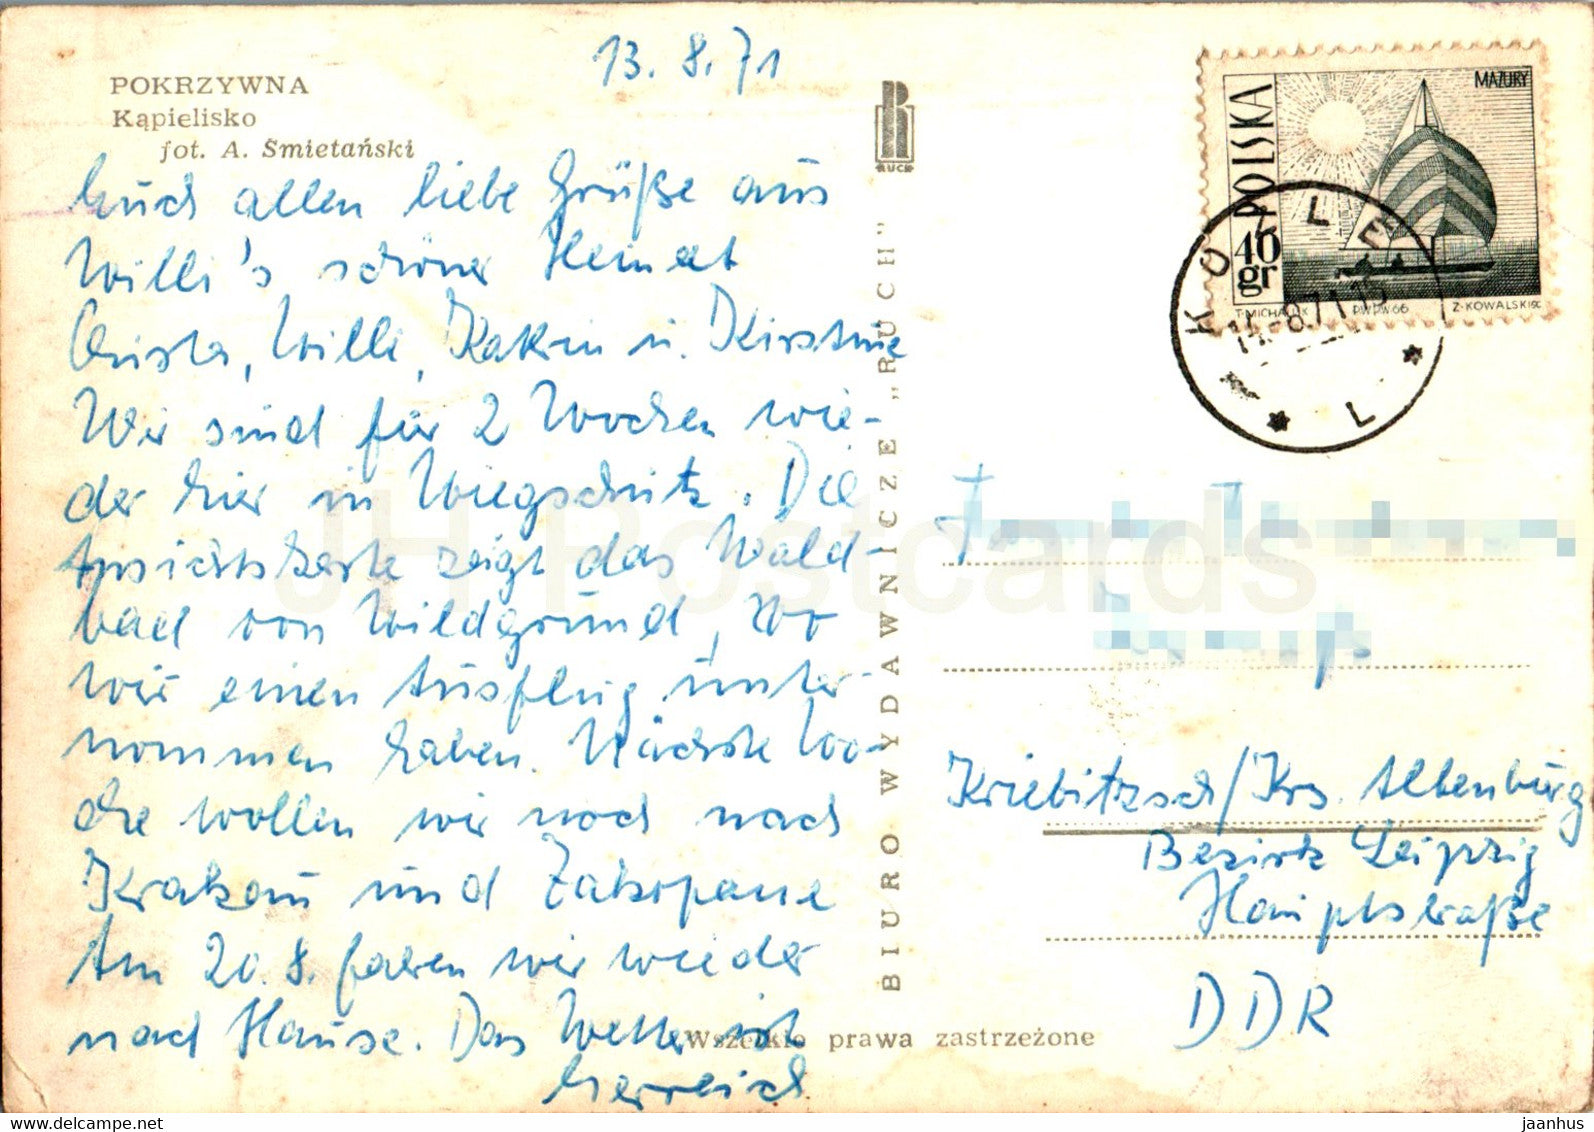 POKRZYWNA
Kąpielisko
fot. A. Śmietański
13. 8. 71
Euch allen liebe Grüße aus
Willi's schöner Heimat
Christa, Willi, Katrin u. Kirstine
Wir sind für 2 Wochen wie-
der hier in Wiegschütz. Die
Ansichtskarte zeigt das Wald-
bad von Wildgrund, wo
wir einen Ausflug unter-
nommen haben. Nächste Wo-
che wollen wir noch nach
Krakau und Zakopane
Am 20.8. fahren wir wieder
nach Hause. Das Wetter ist
herrlich
RUCH
BIURO WYDAWNICZE „RUCH"
Wszelkie prawa zastrzeżone
POLSKA
40 gr
MAZURY
T. MICHALUK PWPW 66 Z. KOWALSKI SC.
KOŹLE
-8.71.15
* L *
Kriebitzsch/Krs. Altenburg
Bezirk Leipzig
Hauptstraße
DDR
JH Postcards
jaanhus